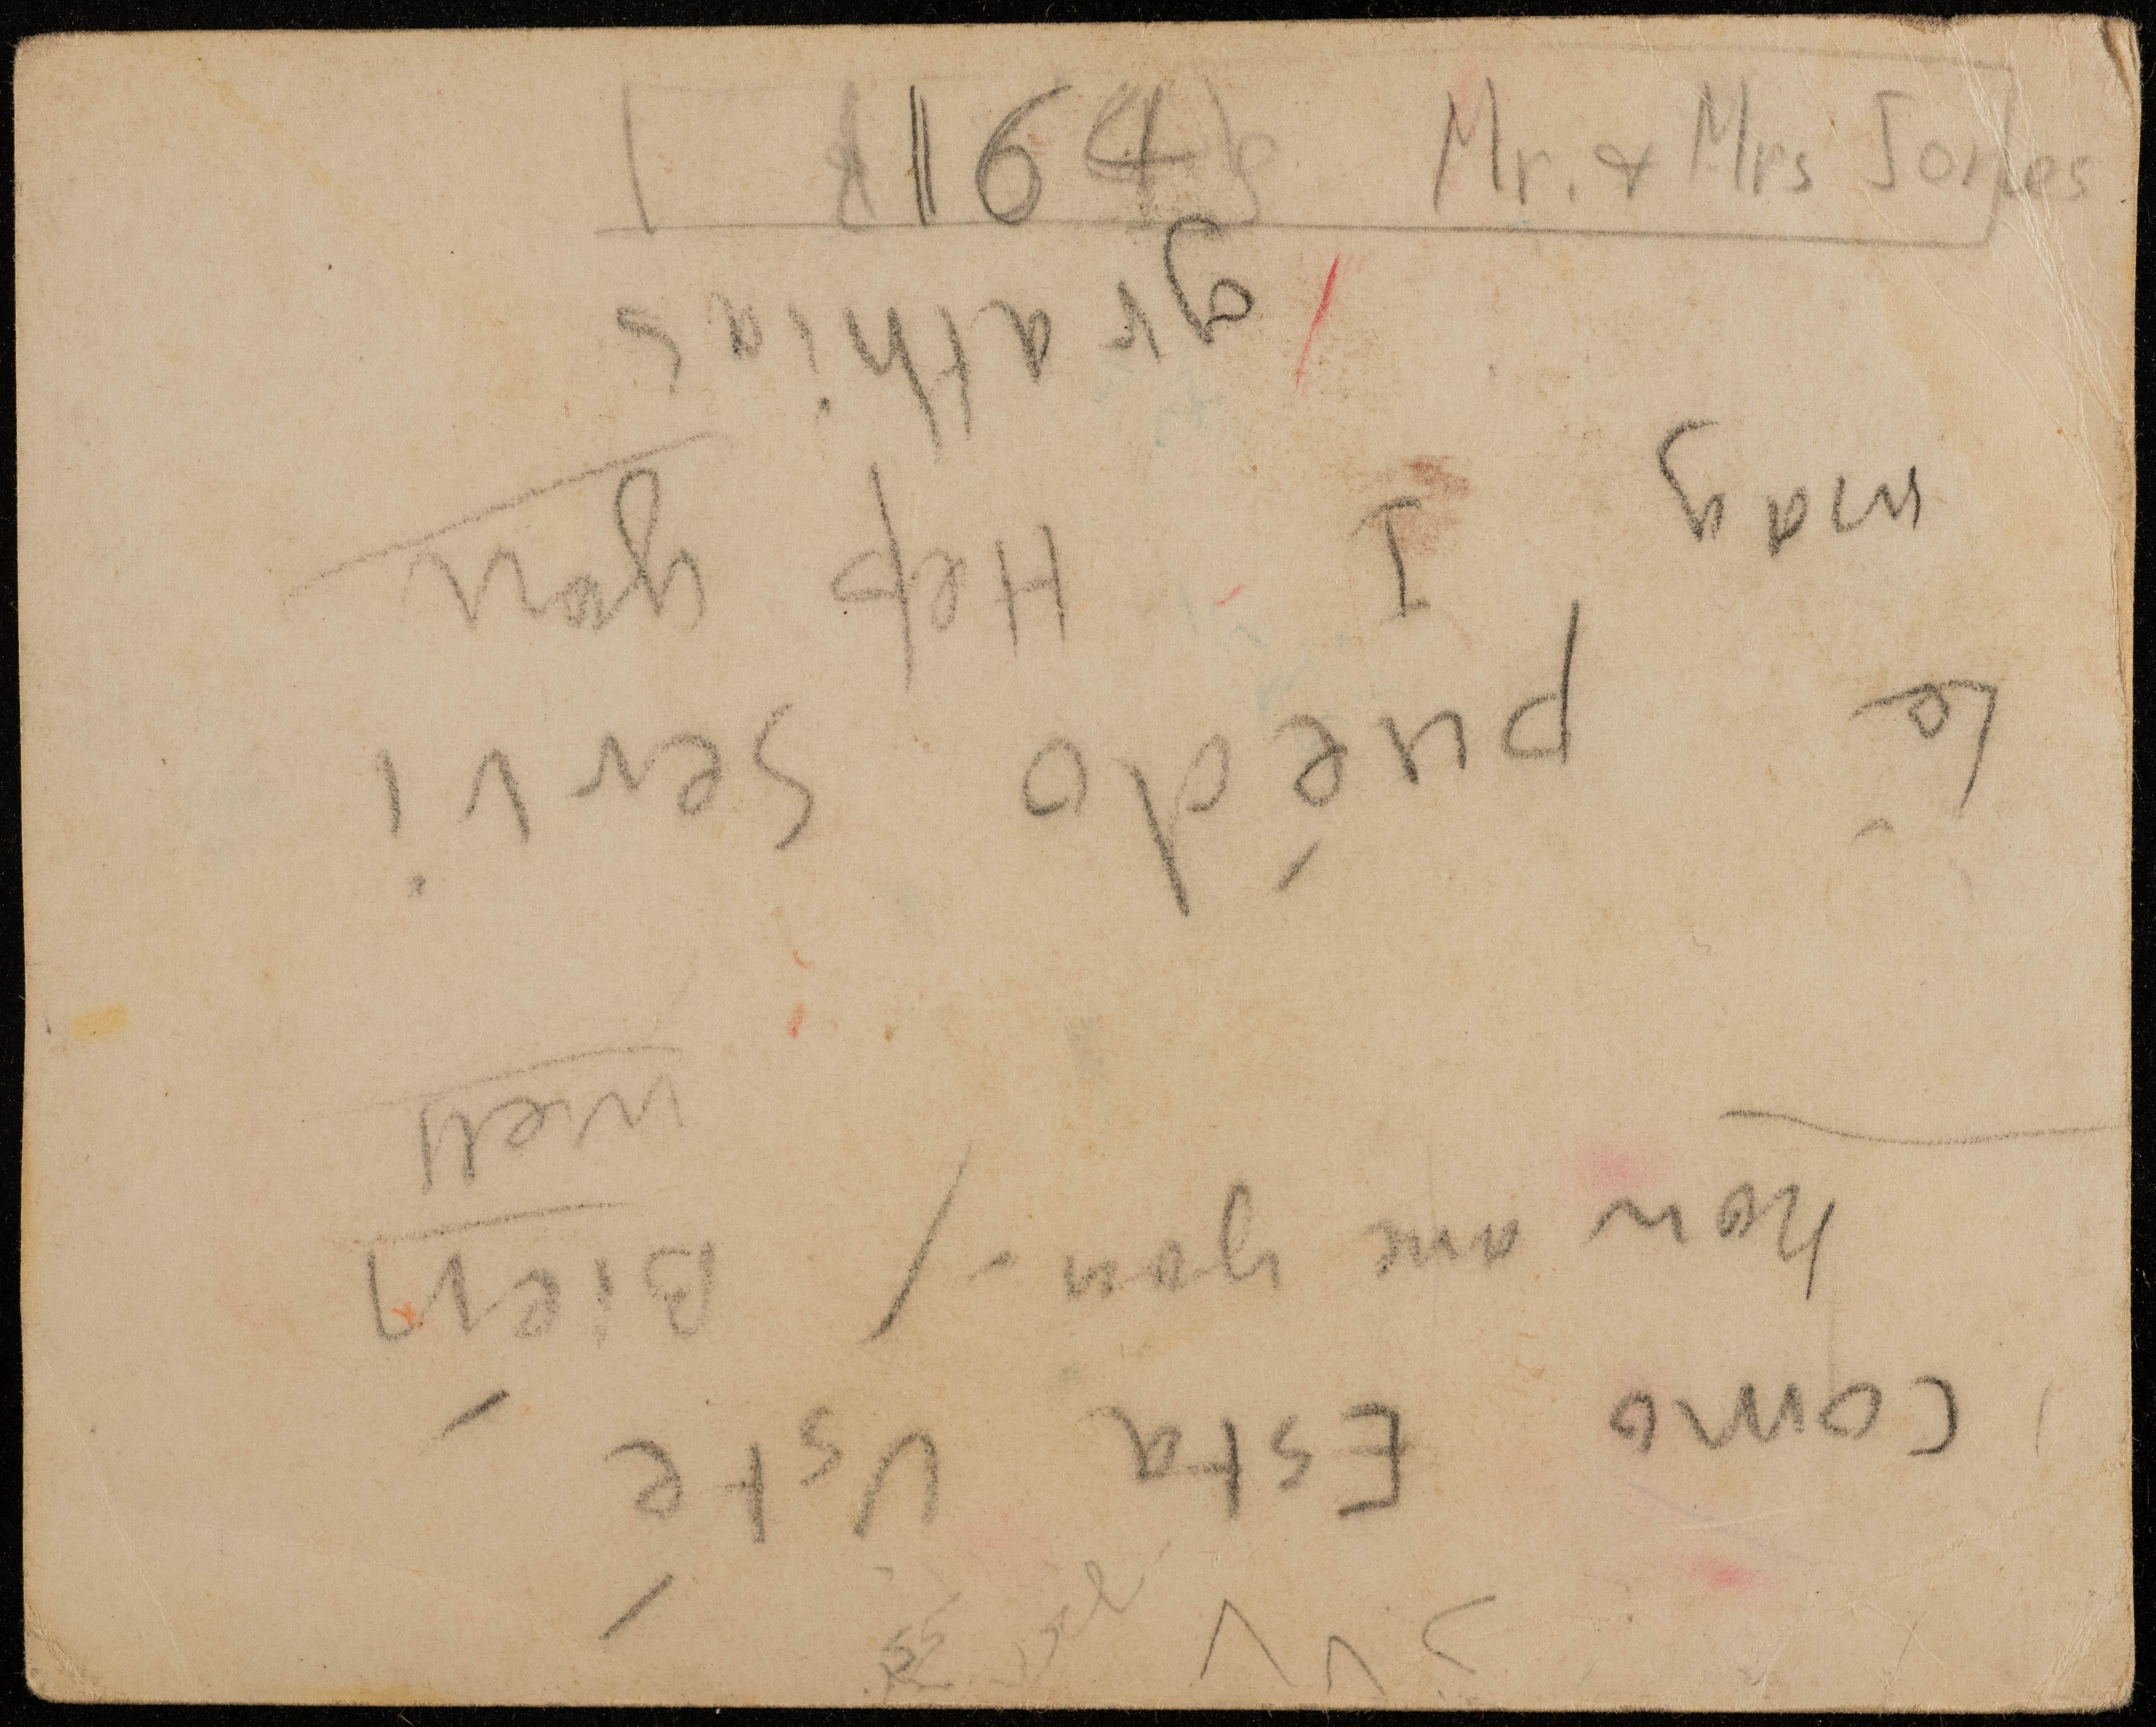 164 Mr. & Mrs Jones
Como Esta Usté
how are you - / Bien
well
Le puedo Servi
may I Help you
grathias